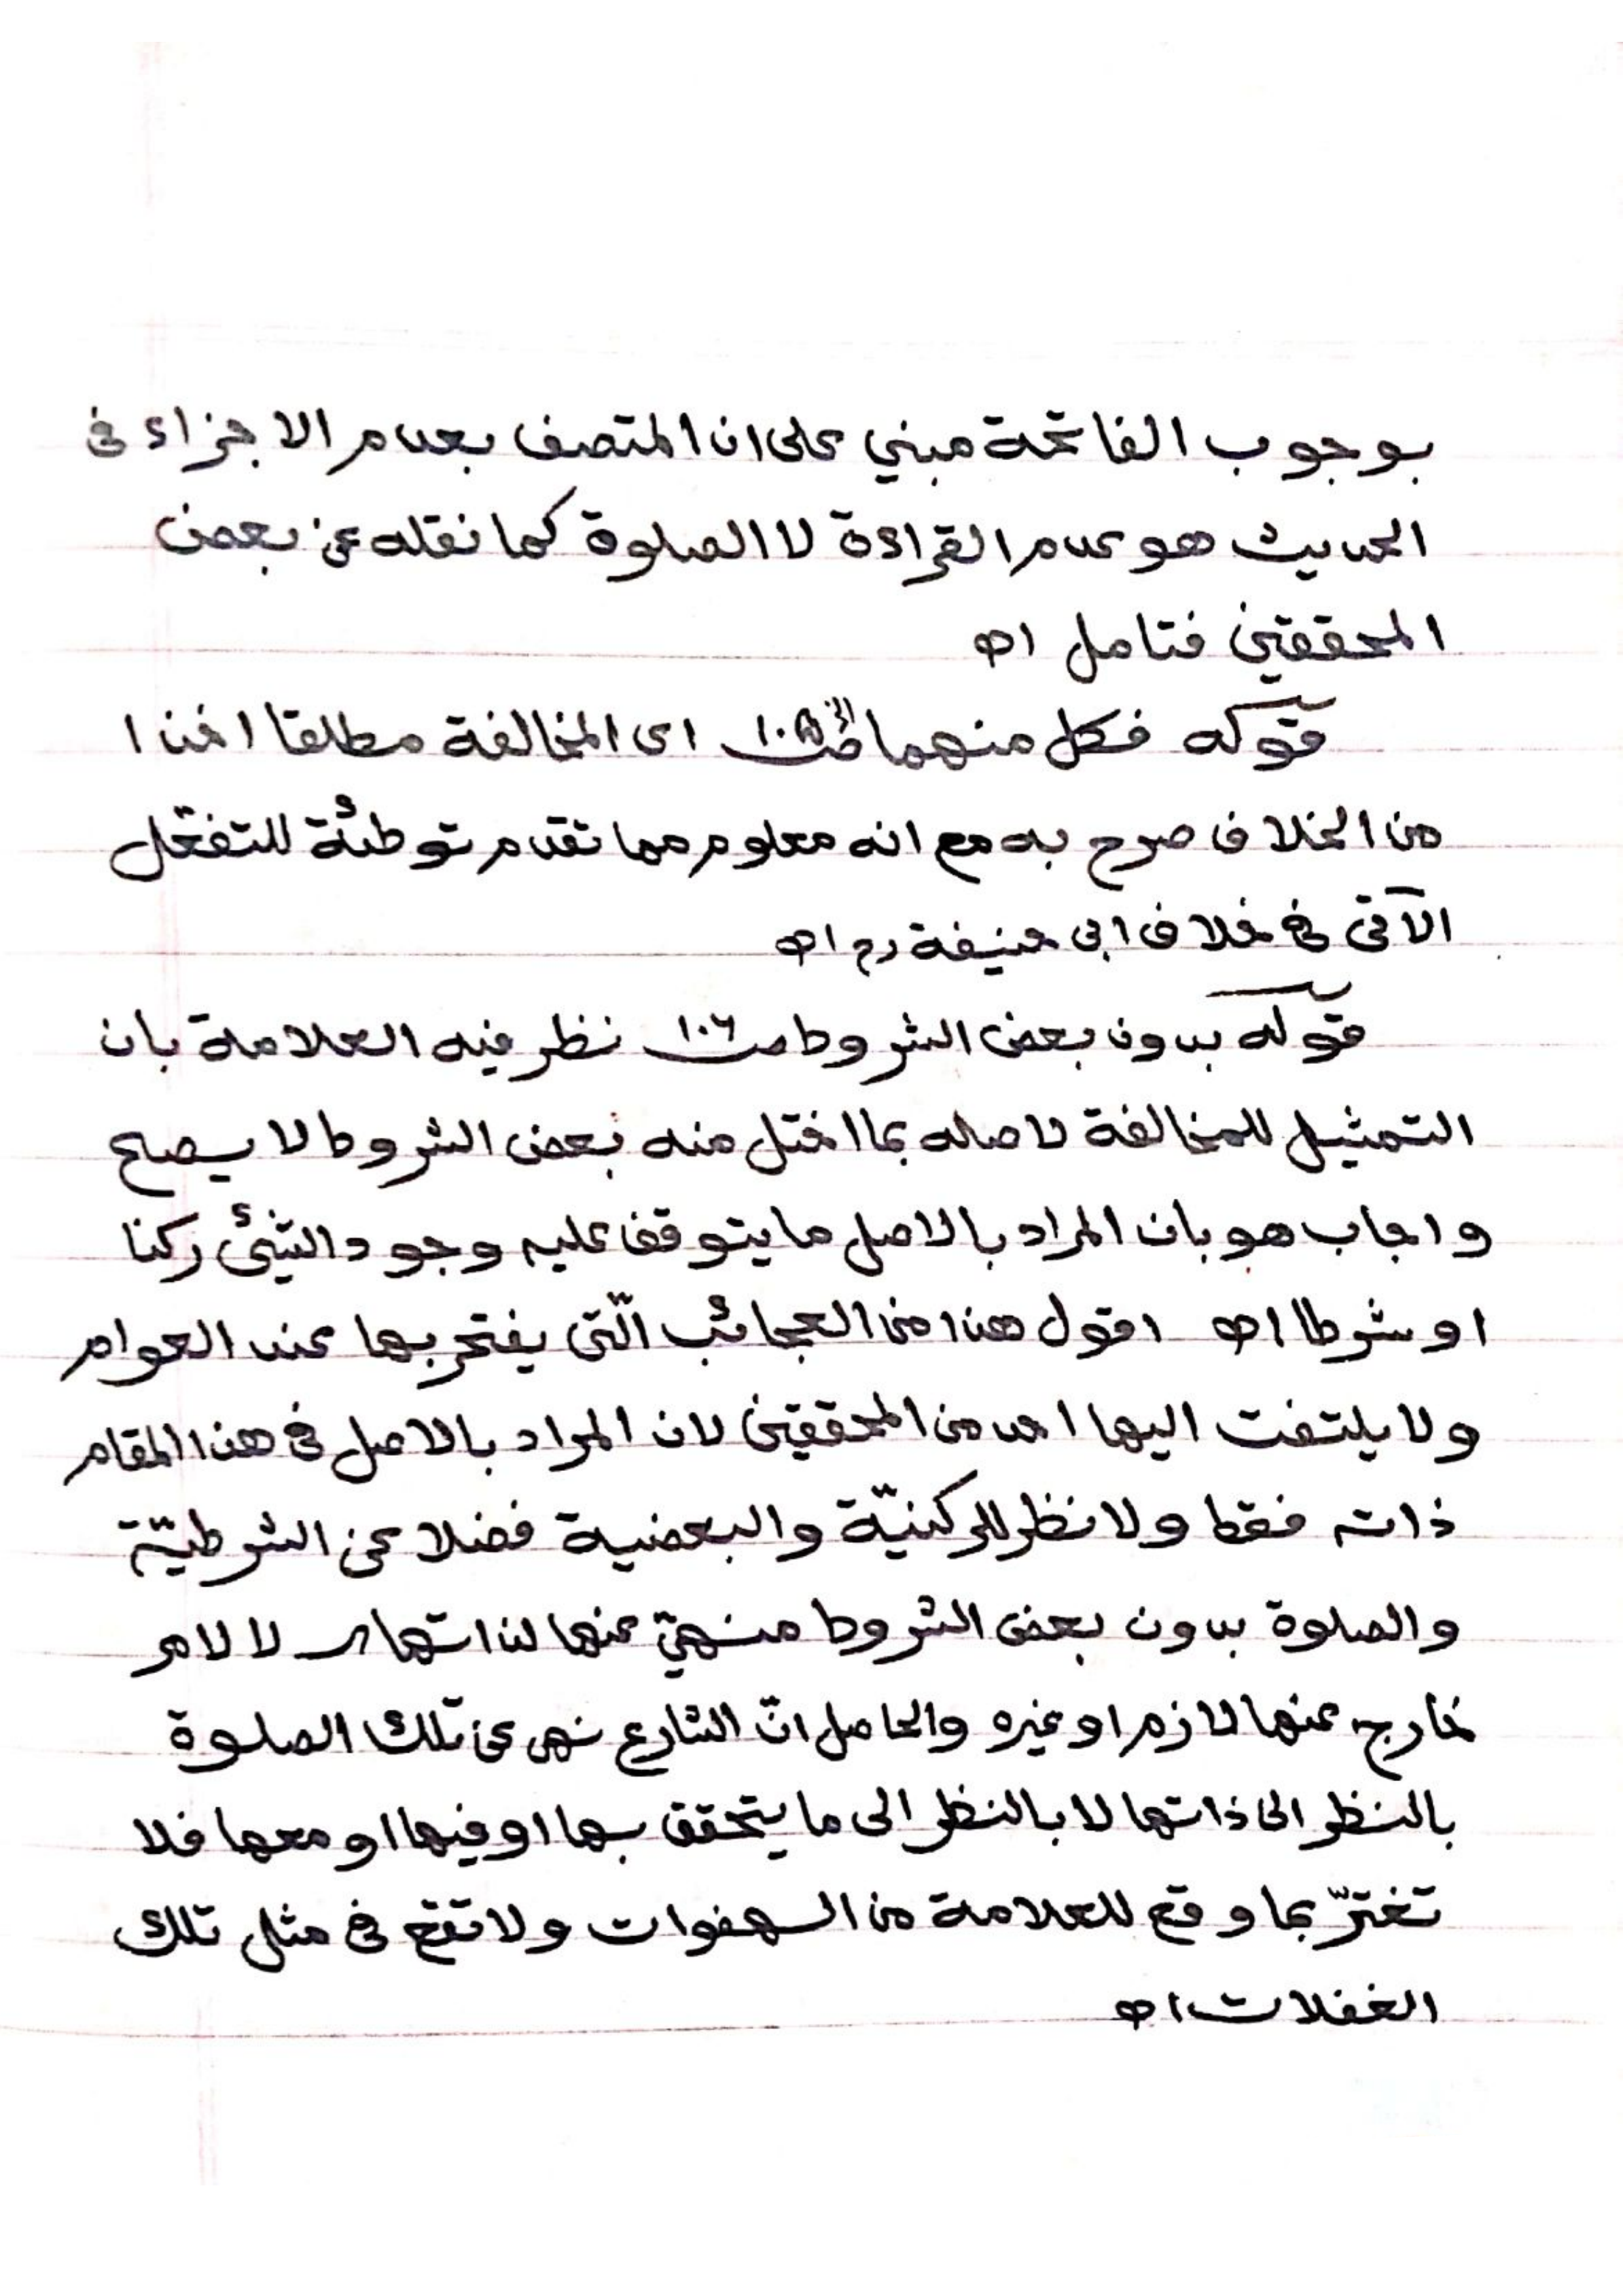 بوجوب الفاتحة مبني على ان المتصف بعدم الاجزاء فى
الحديث هو عدم القراءة لا الصلوة كما نقله عن بعض
المحققين فتامل اھ
قوله فكل منهما الخ صـ ١٠٥ اى المخالفة مطلقا اخذا
من الخلاف صرح به مع انه معلوم مما تقدم توطئة للتفصّل
الآتى فى خلاف ابى حنيفة رح اھ
قوله بدون بعض الشروط صـ ١٠٦ نظر فيه العلامة بان
التمثيل للمخالفة لاصله بما اختل منه بعض الشروط لا يصح
واجاب هو بان المراد بالاصل ما يتوقف عليه وجود الشئ ركنا
او شرطا اھ اقول هذا من العجائب الّتى يفتخر بها عند العوام
ولا يلتفت اليها احد من المحققين لان المراد بالاصل فى هذا المقام
ذاته فقط ولا نظر للركنيّة والبعضية فضلا عن الشرطيّة
والصلوة بدون بعض الشروط منهيّ عنها لذاتها لا لامر
خارج عنها لازم او غيره والحاصل انّ الشارع نهى عن تلك الصلوة
بالنظر الى ذاتها لا بالنظر الى ما يتحقق بها او فيها او معها فلا
تغترّ بما وقع للعلامة من الهفوات ولا تقع فى مثل تلك
الغفلات اھ